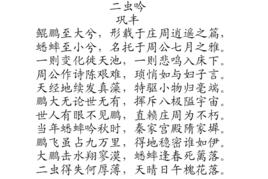 二虫吟
巩丰
鲲鹏至大兮，形载于庄周逍遥之篇，
蟋蟀至小兮，名托于周公七月之雅。
一则变化徙天池，一则悲鸣入床下。
周公作诗陈艰难，琐悄如与妇子言。
天经地维发真藻，特驱小物归毫端。
鹏大无论世无有，挥斥八极隘宇宙。
世人有眼不见鹏，直赖庄周为不朽。
当年蟋蟀吟秋时，秦家宫殿隋家墀。
鹏飞虽占九万里，得地稳密谁如伊。
大鹏击水翔寥漠，蟋蟀逢春死蓠落。
二虫得失何厚薄，天晴日午槐花落。